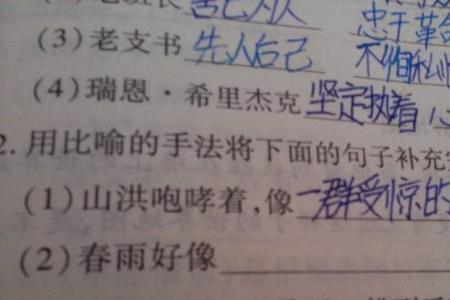 老班长 舍己为人 忠于革命
(3)老支书 先人后己 不怕
(4)瑞恩·希里杰克 坚定执着
2.用比喻的手法将下面的句子补充
(1)山洪咆哮着,像一群受惊的
(2)春雨好像